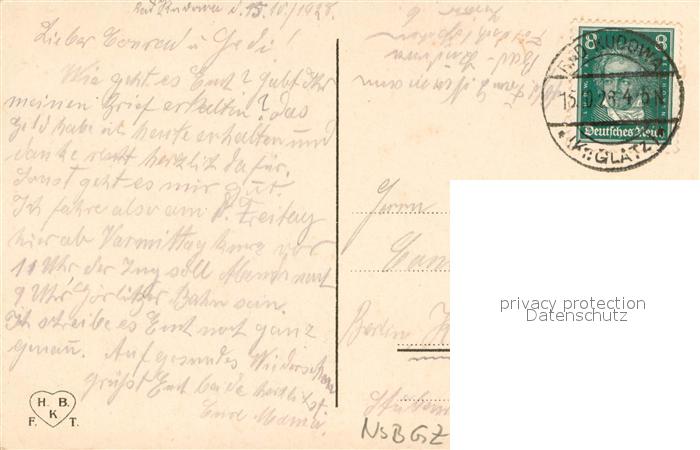 Bad Kudowa d. 15.10./1928.
Lieber Conrad u. Hedi!
Wie geht es Euch? Habt Ihr
meinen Brief erhalten? Das
Geld habe ich heute erhalten und
danke recht herzlich dafür.
Sonst geht es mir gut.
Ich fahre also am Freitag
hier ab Vormittag kurz vor
11 Uhr der Zug soll Abends nach
9 Uhr Görlitzer Bahn sein.
Ich schreibe es Euch noch ganz
genau. Auf gesundes Wiedersehen
grüßt Euch beide herzlichst
Eure Mama.
H. B.
K
F. T.
Bad-Kudowa
8 8
Deutsches Reich
BAD KUDOWA
15.10.28.4-5N
(Kr. GLATZ)
Herrn
Berlin
NsBGZ
privacy protection
Datenschutz